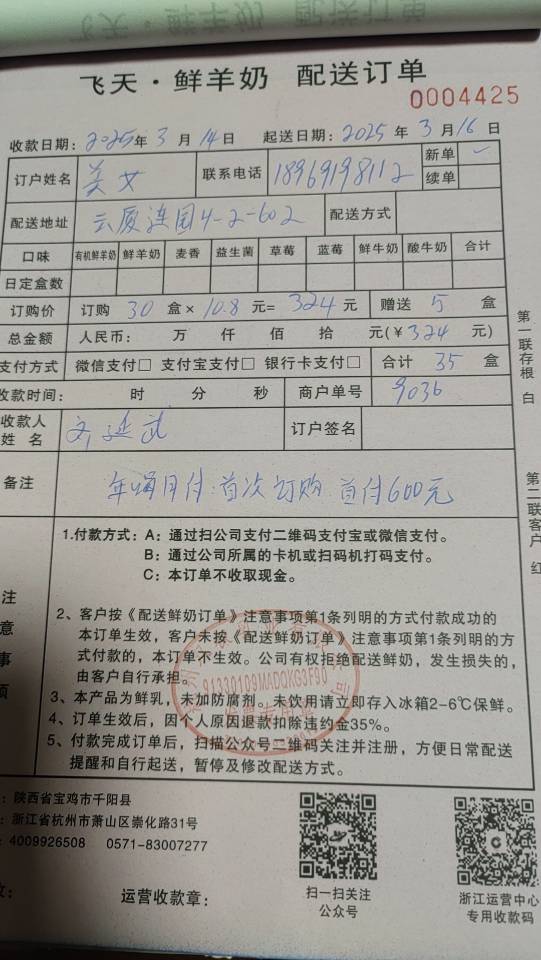 飞天·鲜羊奶 配送订单
0004425
收款日期：2025年3月14日 起送日期：2025年3月16日
订户姓名 美女 联系电话 18969198112 新单 ✓
续单
配送地址 云厦连园4-2-602 配送方式
口味 有机鲜羊奶 鲜羊奶 麦香 益生菌 草莓 蓝莓 鲜牛奶 酸牛奶 合计
日定盒数
订购价 订购 30 盒× 10.8 元= 324 元 赠送 5 盒
总金额 人民币： 万 仟 佰 拾 元(¥324 元)
支付方式 微信支付□ 支付宝支付□ 银行卡支付□ 合计 35 盒
收款时间： 时 分 秒 商户单号 9036
收款人姓名 刘延武 订户签名
备注 年嗬月付 首次订购 首付600元
第一联存根 白
第二联客户 红
注意事项
1.付款方式：A：通过扫公司支付二维码支付宝或微信支付。
B：通过公司所属的卡机或扫码机打码支付。
C：本订单不收取现金。
2、客户按《配送鲜奶订单》注意事项第1条列明的方式付款成功的
本订单生效，客户未按《配送鲜奶订单》注意事项第1条列明的方
式付款的，本订单不生效。公司有权拒绝配送鲜奶，发生损失的，
由客户自行承担。
3、本产品为鲜乳，未加防腐剂。未饮用请立即存入冰箱2-6℃保鲜。
4、订单生效后，因个人原因退款扣除违约金35%。
5、付款完成订单后，扫描公众号二维码关注并注册，方便日常配送
提醒和自行起送，暂停及修改配送方式。
91330109MADQKG3F90
：陕西省宝鸡市千阳县
：浙江省杭州市萧山区崇化路31号
：4009926508 0571-83007277
运营收款章：
扫一扫关注
公众号
浙江运营中心
专用收款码